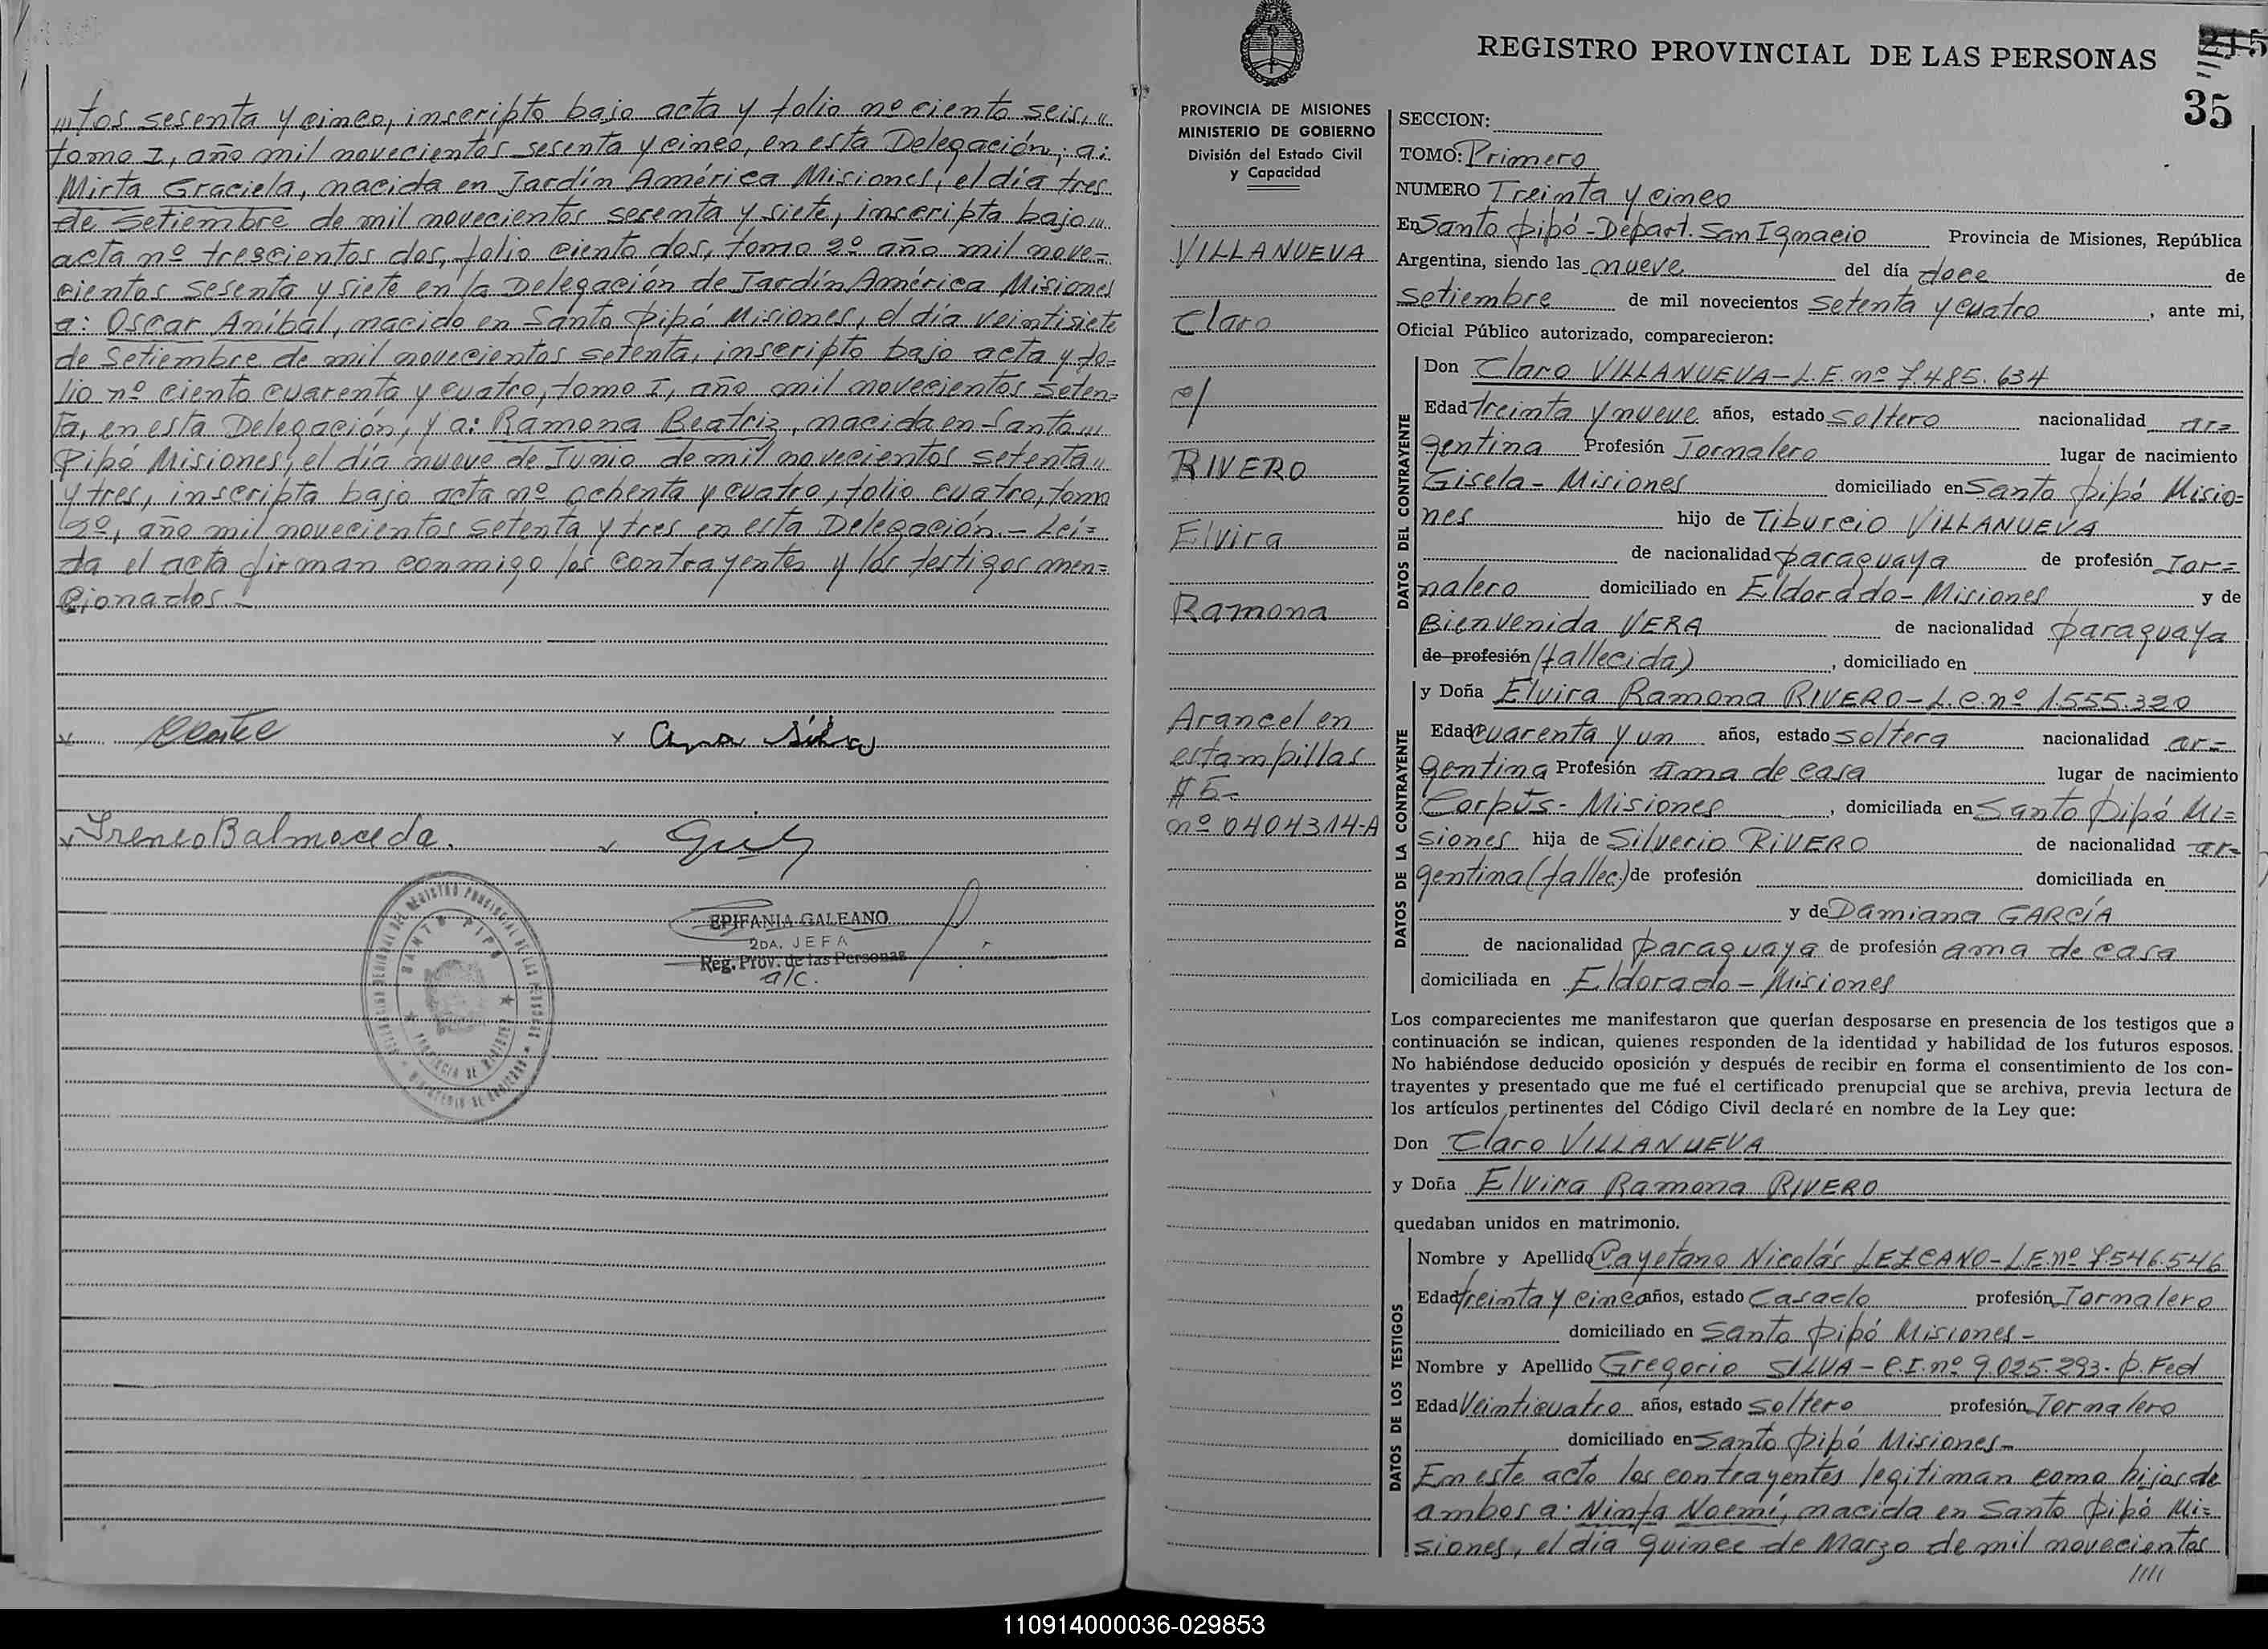 „,tos sesenta y cinco, inscripto bajo acta y folio nº ciento seis, „
tomo I, año mil novecientos sesenta y cinco, en esta Delegación; a:
Mirta Graciela, nacida en Jardín América Misiones, el día tres
de Setiembre de mil novecientos sesenta y siete, inscripta bajo „,
acta nº trescientos dos, folio ciento dos, tomo 2º año mil nove=
cientos sesenta y siete en la Delegación de Jardín América Misiones
a: Oscar Aníbal, nacido en Santo Pipó Misiones, el día veintisiete
de Setiembre de mil novecientos setenta, inscripto bajo acta y fo=
lio nº ciento cuarenta y cuatro, tomo I, año mil novecientos seten=
ta, en esta Delegación, y a: Ramona Beatriz, nacida en Santo „,
Pipó Misiones, el día nueve de Junio de mil novecientos setenta „
y tres, inscripta bajo acta nº ochenta y cuatro, folio cuatro, tomo
2º, año mil novecientos setenta y tres en esta Delegación.- Leí=
da el acta firman conmigo los contrayentes y los testigos men=
cionados-
x x Ana Silva
x Ireneo Balmaceda. x
EPIFANIA GALEANO
2DA. JEFA
Reg. Prov. de las Personas
a/c.
SANTO PIPO
REGISTRO PROVINCIAL DE LAS PERSONAS
REGISTRO PROVINCIAL DE LAS PERSONAS
215
35
PROVINCIA DE MISIONES
MINISTERIO DE GOBIERNO
División del Estado Civil
y Capacidad
VILLANUEVA
Claro
c/
RIVERO
Elvira
Ramona
Arancel en
estampillas
$ 5-
nº 0404314-A
SECCION:
TOMO: Primero
NUMERO Treinta y cinco
En Santo Pipó - Depart. San Ignacio Provincia de Misiones, República
Argentina, siendo las nueve del día doce de
setiembre de mil novecientos setenta y cuatro, ante mi,
Oficial Público autorizado, comparecieron:
DATOS DEL CONTRAYENTE
Don Claro VILLANUEVA - L.E. nº 7.485.634
Edad treinta y nueve años, estado soltero nacionalidad ar=
gentina Profesión Jornalero lugar de nacimiento
Gisela - Misiones domiciliado en Santo Pipó Misio=
nes hijo de Tiburcio VILLANUEVA
de nacionalidad paraguaya de profesión Jor=
nalero domiciliado en Eldorado - Misiones y de
Bienvenida VERA de nacionalidad paraguaya
de profesión (fallecida), domiciliado en
DATOS DE LA CONTRAYENTE
y Doña Elvira Ramona RIVERO - L.C. nº 1.555.320
Edad cuarenta y un años, estado soltera nacionalidad ar=
gentina Profesión ama de casa lugar de nacimiento
Corpus - Misiones, domiciliada en Santo Pipó Mi=
siones hija de Silverio RIVERO de nacionalidad ar=
gentina (fallec.) de profesión domiciliada en
y de Damiana GARCÍA
de nacionalidad paraguaya de profesión ama de casa
domiciliada en Eldorado - Misiones
Los comparecientes me manifestaron que querían desposarse en presencia de los testigos que a
continuación se indican, quienes responden de la identidad y habilidad de los futuros esposos.
No habiéndose deducido oposición y después de recibir en forma el consentimiento de los con-
trayentes y presentado que me fué el certificado prenupcial que se archiva, previa lectura de
los artículos pertinentes del Código Civil declaré en nombre de la Ley que:
Don Claro VILLANUEVA
y Doña Elvira Ramona RIVERO
quedaban unidos en matrimonio.
DATOS DE LOS TESTIGOS
Nombre y Apellido Cayetano Nicolás LEZCANO - L.E. nº 7.546.546
Edad treinta y cinco años, estado Casado profesión Jornalero
domiciliado en Santo Pipó Misiones -
Nombre y Apellido Gregorio SILVA - C.I. nº 9.025.293 - P. Fed
Edad Veinticuatro años, estado soltero profesión Jornalero
domiciliado en Santo Pipó Misiones -
En este acto los contrayentes legitiman como hijos de
ambos a: Ninfa Noemí, nacida en Santo Pipó Mi=
siones, el día quince de Marzo de mil novecientos
////
110914000036-029853